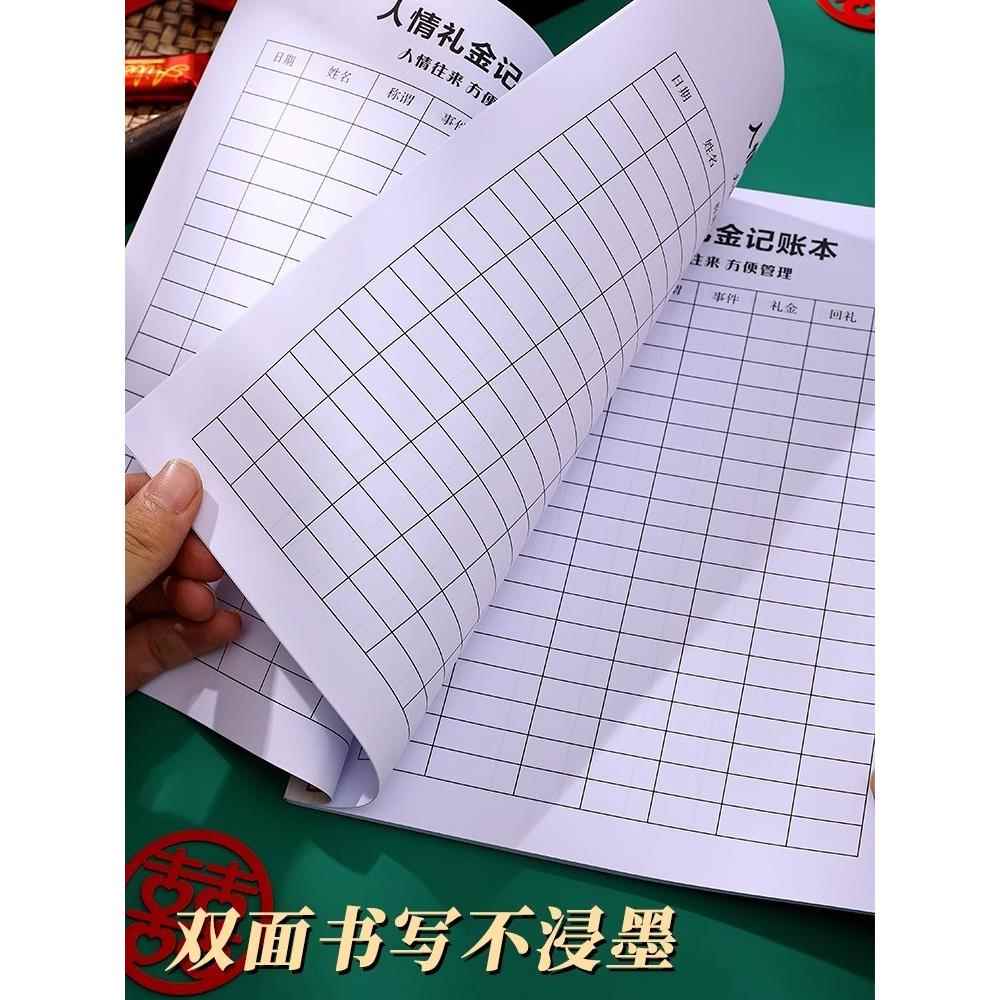 人情礼金记
人情往来 方便
日期 姓名 称谓 事件
日期 姓名
金记账本
往来 方便管理
事件 礼金 回礼
双面书写不浸墨